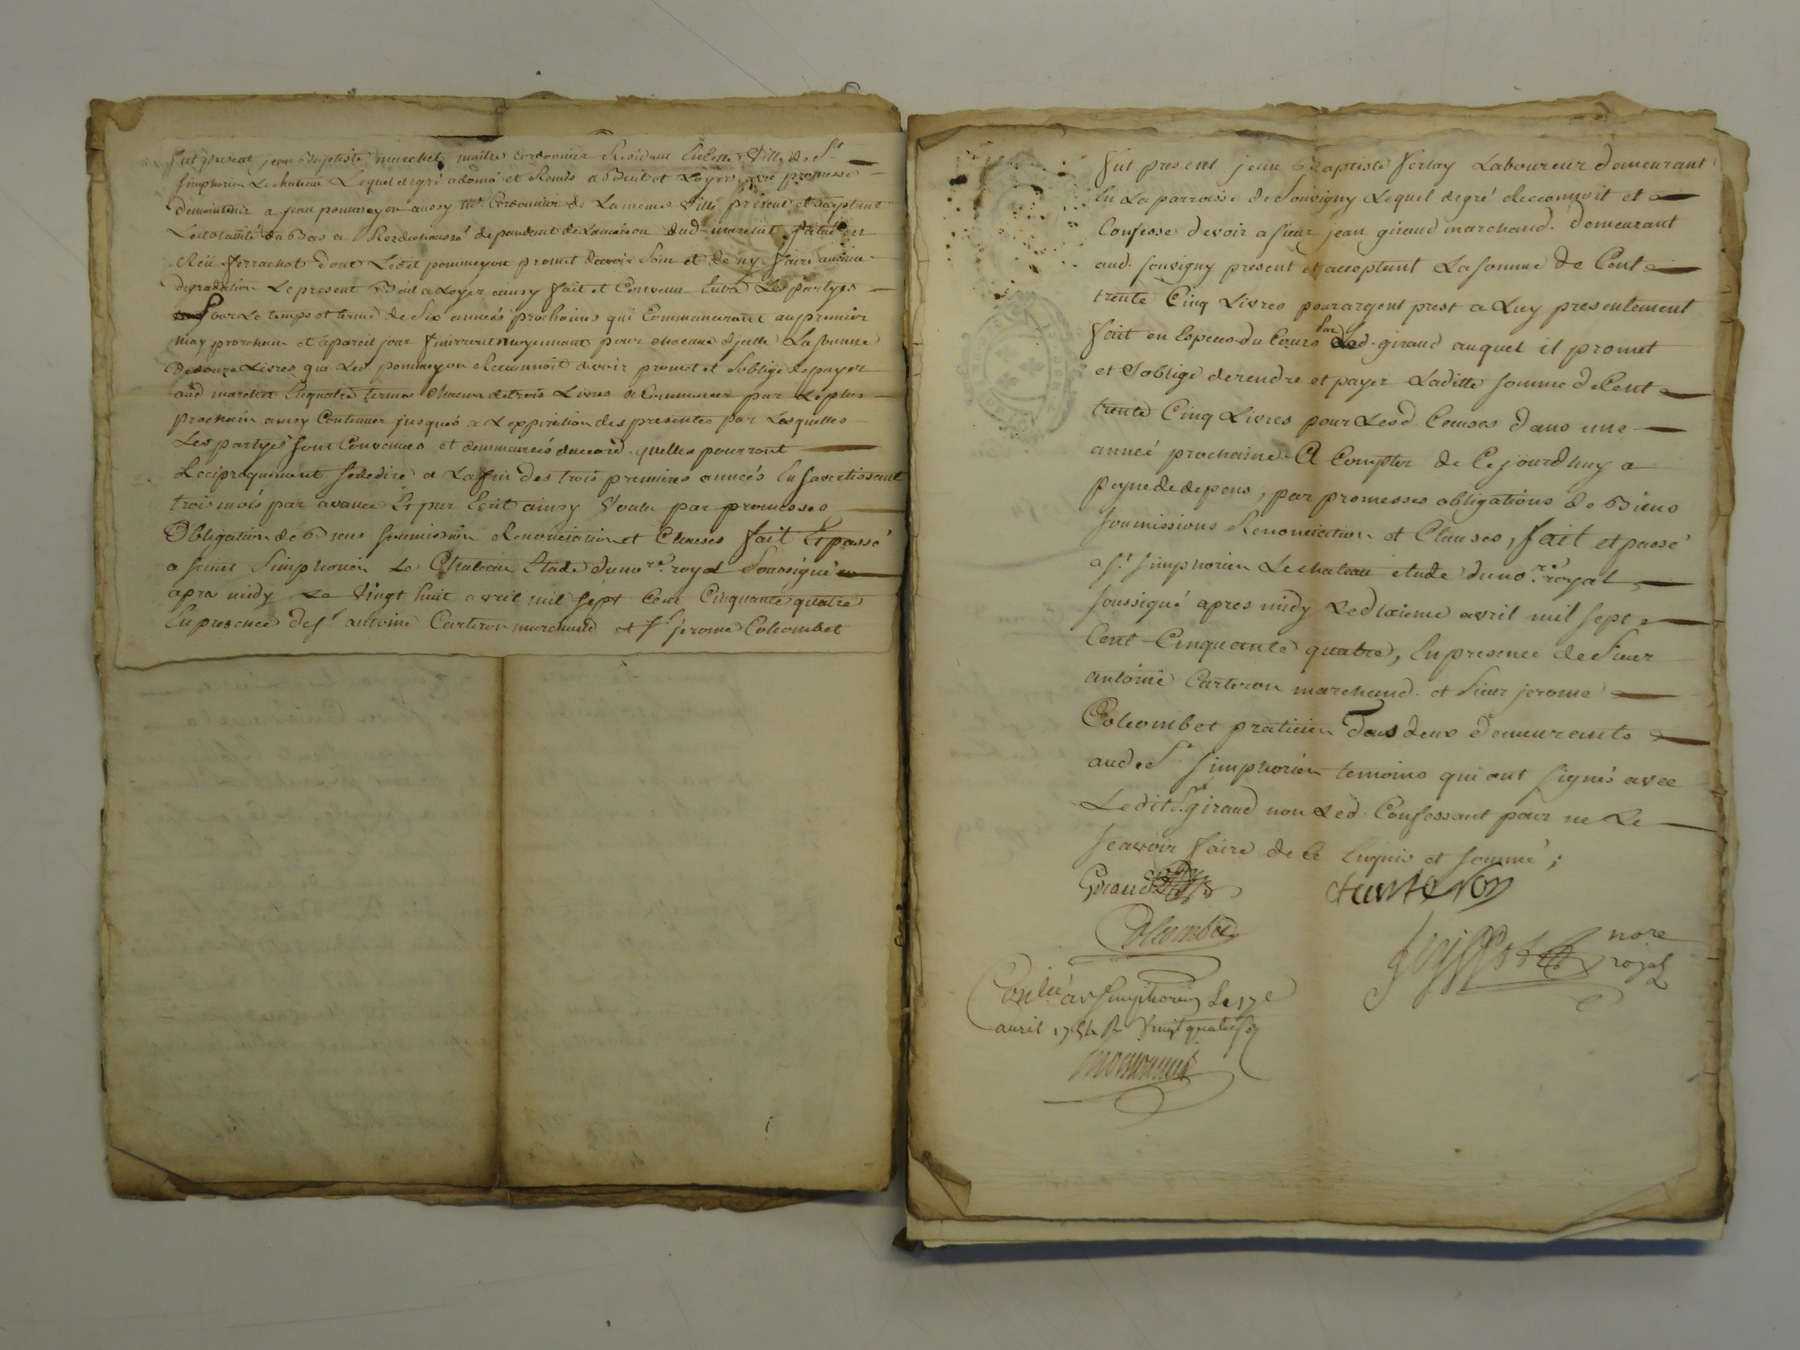 fut present jean Baptiste marchet maitre Cordonnier Residant En Cette Ville de St
simphorien Le chateau Lequel de gré a donné et Remis a Beil et Loyer avec promesse
de maintenir a jean pommeyon aussy me Cordonnier de La meme Ville present et acceptant
a Bas a Rezdechaussé dependant de La maison dud. marchet, situé en
Rüe ferrachat dont Ledit pommeyon promet davoir soin et de ny faire aucune
degradation Le present Bail a Loyer ainsy fait et Convenu Entre Les partyes
pour Le temps et terme de Six années prochaines qui Commenceront au premier
may prochain et a pareil jour finiront moyennant pour chacune djcelle La somme
de douze Livres que Led. pommeyon Reconnoit devoir promet et soblige de payer
aud marchet En quatre termes Chacun de trois Livres a Commencer par Le plus
prochain ainsy Continuer jusques a Lexpiration des presentes par Lesquelles
Les partyes sont Convenues et demeurées daccord quelles pourront
Reciproquement se dedire a La fin des trois premieres années En savertissant
trois mois par avance Et par Ecrit ainsy Voulu par promesses
Obligation de Biens soumission Renonciation et Clauses fait Et passé
a saint Simphorien Le Chateau Etude du nore royal Soussigné
apres midy Le Vingt huit avril mil sept Cent Cinquante quatre
En presence de sr antoine Carteron marchand et sr jerome Colcombet
fut present jean Baptiste ferlay Laboureur demeurant
En La parroisse de Souvigny Lequel de gré Reconnoit et
Confesse devoir a sieur jean giraud marchand demeurant
aud. souvigny present et acceptant La somme de Cent
trente Cinq Livres pour argent prest a Luy presentement
fait en Especes du Cours par Led. giraud auquel il promet
et soblige de rendre et payer Laditte somme de Cent
trente Cinq Livres pour Lesd. Causes dans une
année prochaine A Compter de Cejourdhuy a
peyne de depens, par promesses obligations de Biens
soumissions Renonciation et Clauses, fait et passé
a St simphorien Le chateau etude du nore royal
soussigné apres midy Le dixieme avril mil sept
Cent Cinquante quatre, En presence de Sieur
antoine Carteron marchand et Sieur jerome
Colcombet praticien tous deux demeurants
aud. St simphorien temoins qui ont signés avec
Ledit sr giraud non Led. Confessant pour ne Le
scavoir faire de Ce Enquis et sommé;
Giraud
Carteron
Colcombet
nore
royal
Conlé a St Simphorien Le 17e
avril 1754 R Vingt quatre s